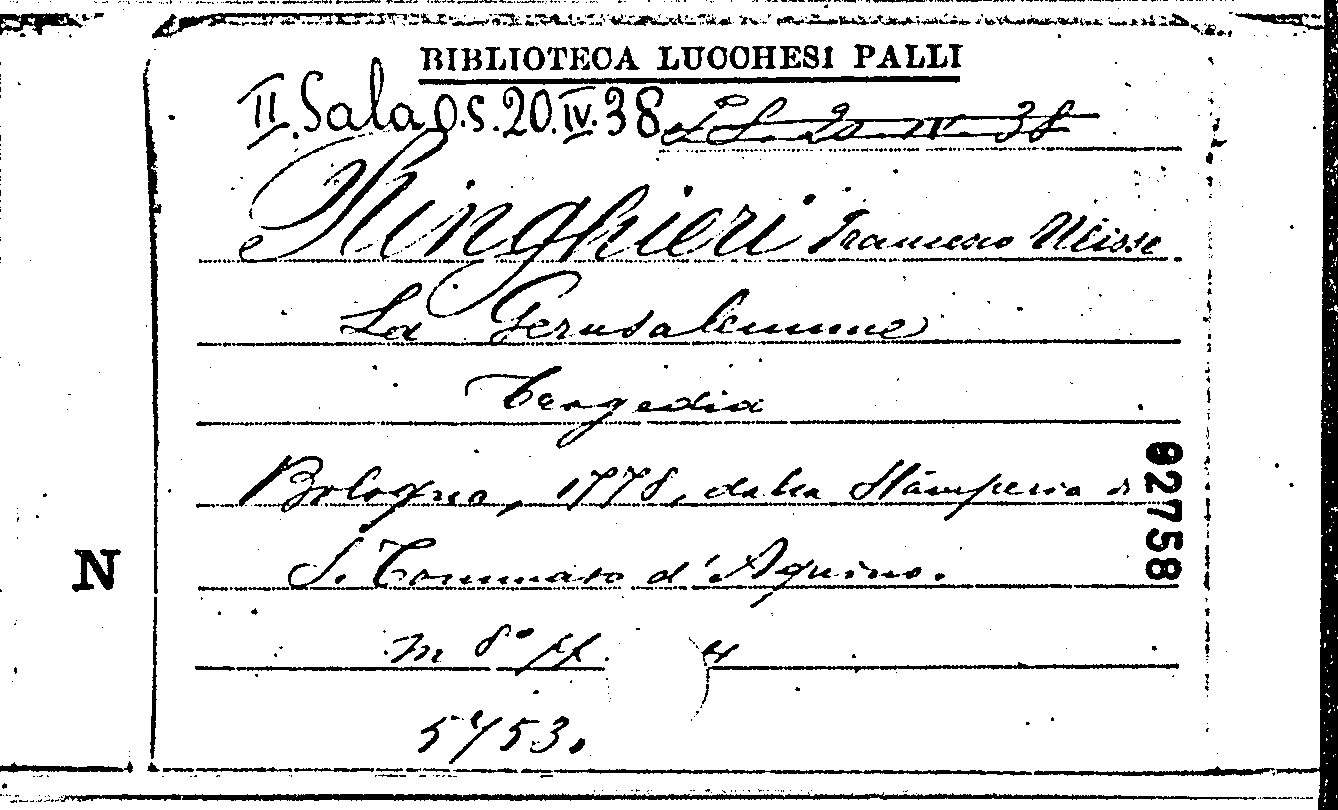 BIBLIOTECA LUCCHESI PALLI
II. Sala O.S. 20.IV.38
Ringhieri Francesco Ulisse
La Gerusalemme
Tragedia
Bologna, 1778, dalla Stamperia di
S. Tommaso d'Aquino.
in 8° pp.
5753.
02758
N